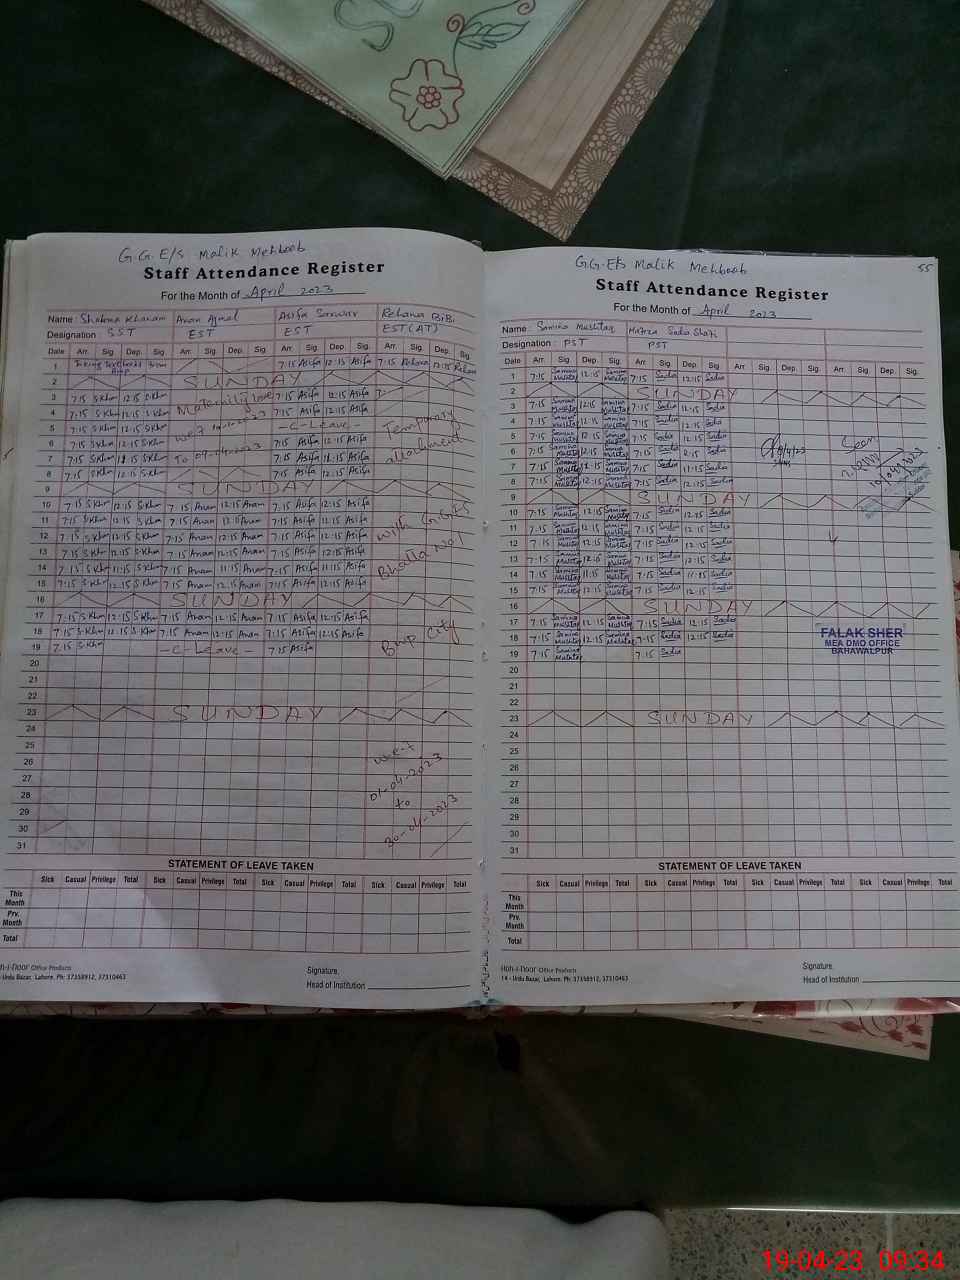 G.G.E/S Malik Mehboob
Staff Attendance Register
For the Month of April 2023
Name: Shabna Khanam Anam Ajmal Asifa Sarwar Rehana BiBi
Designation: SST EST EST EST (AT)
Date Arr. Sig. Dep. Sig. Arr. Sig. Dep. Sig. Arr. Sig. Dep. Sig. Arr. Sig. Dep. Sig.
1 Taking Text books from 7:15 Asifa 12:15 Asifa 7:15 Rehana 12:15 Rehana
2 SUNDAY
3 7:15 S.Khm 12:15 S.Khm 7:15 Asifa 12:15 Asifa
4 7:15 S.Khm 12:15 S.Khm Maternity leave 7:15 Asifa 12:15 Asifa
5 7:15 S.Khm 12:15 S.Khm w.e.f -C-Leave- Temporary
6 7:15 S.Khm 12:15 S.Khm 7:15 Asifa 12:15 Asifa attachment
7 7:15 S.Khm 11:15 S.Khm To 09-04-2023 7:15 Asifa 11:15 Asifa
8 7:15 S.Khm 12:15 S.Khm 7:15 Asifa 12:15 Asifa
9 SUNDAY
10 7:15 S.Khm 12:15 S.Khm 7:15 Anam 12:15 Anam 7:15 Asifa 12:15 Asifa
11 7:15 S.Khm 12:15 S.Khm 7:15 Anam 12:15 Anam 7:15 Asifa 12:15 Asifa with GGES
12 7:15 S.Khm 12:15 S.Khm 7:15 Anam 12:15 Anam 7:15 Asifa 12:15 Asifa
13 7:15 S.Khm 12:15 S.Khm 7:15 Anam 12:15 Anam 7:15 Asifa 12:15 Asifa Bhatta No 1
14 7:15 S.Khm 11:15 S.Khm 7:15 Anam 11:15 Anam 7:15 Asifa 11:15 Asifa
15 7:15 S.Khm 12:15 S.Khm 7:15 Anam 12:15 Anam 7:15 Asifa 12:15 Asifa
16 SUNDAY
17 7:15 S.Khm 12:15 S.Khm 7:15 Anam 12:15 Anam 7:15 Asifa 12:15 Asifa
18 7:15 S.Khm 12:15 S.Khm 7:15 Anam 12:15 Anam 7:15 Asifa 12:15 Asifa Bwp City
19 7:15 S.Khm -C-Leave- 7:15 Asifa
20
21
22
23 SUNDAY
24
25
26 w.e.f
27 01-04-2023
28 to
29 30-04-2023
30
31
STATEMENT OF LEAVE TAKEN
Sick Casual Privilege Total Sick Casual Privilege Total Sick Casual Privilege Total Sick Casual Privilege Total
This Month
Prv. Month
Total
Office Products
Urdu Bazar, Lahore. Ph: 37358912, 37310463
Signature.
Head of Institution
G.G.E/S Malik Mehboob 55
Staff Attendance Register
For the Month of April 2023
Name: Samina Mushtaq Hafza Sadia Shafi
Designation: PST PST
Date Arr. Sig. Dep. Sig. Arr. Sig. Dep. Sig. Arr. Sig. Dep. Sig. Arr. Sig. Dep. Sig.
1 7:15 Samina Mushtaq 12:15 Samina Mushtaq 7:15 Sadia 12:15 Sadia
2 SUNDAY
3 7:15 Samina Mushtaq 12:15 Samina Mushtaq 7:15 Sadia 12:15 Sadia
4 7:15 Samina Mushtaq 12:15 Samina Mushtaq 7:15 Sadia 12:15 Sadia
5 7:15 Samina Mushtaq 12:15 Samina Mushtaq 7:15 Sadia 12:15 Sadia
6 7:15 Samina Mushtaq 12:15 Samina Mushtaq 7:15 Sadia 12:15 Sadia Seen
7 7:15 Samina Mushtaq 11:15 Samina Mushtaq 7:15 Sadia 11:15 Sadia
8 7:15 Samina Mushtaq 12:15 Samina Mushtaq 7:15 Sadia 12:15 Sadia 10/04/2023
9 SUNDAY
10 7:15 Samina Mushtaq 12:15 Samina Mushtaq 7:15 Sadia 12:15 Sadia
11 7:15 Samina Mushtaq 12:15 Samina Mushtaq 7:15 Sadia 12:15 Sadia
12 7:15 Samina Mushtaq 12:15 Samina Mushtaq 7:15 Sadia 12:15 Sadia
13 7:15 Samina Mushtaq 12:15 Samina Mushtaq 7:15 Sadia 12:15 Sadia
14 7:15 Samina Mushtaq 11:15 Samina Mushtaq 7:15 Sadia 11:15 Sadia
15 7:15 Samina Mushtaq 12:15 Samina Mushtaq 7:15 Sadia 12:15 Sadia
16 SUNDAY
17 7:15 Samina Mushtaq 12:15 Samina Mushtaq 7:15 Sadia 12:15 Sadia
18 7:15 Samina Mushtaq 12:15 Samina Mushtaq 7:15 Sadia 12:15 Sadia
FALAK SHER
MEA DMO OFFICE
BAHAWALPUR
19 7:15 Samina Mushtaq 7:15 Sadia
20
21
22
23 SUNDAY
24
25
26
27
28
29
30
31
STATEMENT OF LEAVE TAKEN
Sick Casual Privilege Total Sick Casual Privilege Total Sick Casual Privilege Total Sick Casual Privilege Total
This Month
Prv. Month
Total
Koh-i-Noor Office Products
14 - Urdu Bazar, Lahore. Ph: 37358912, 37310463
Signature.
Head of Institution
19-04-23 09:34